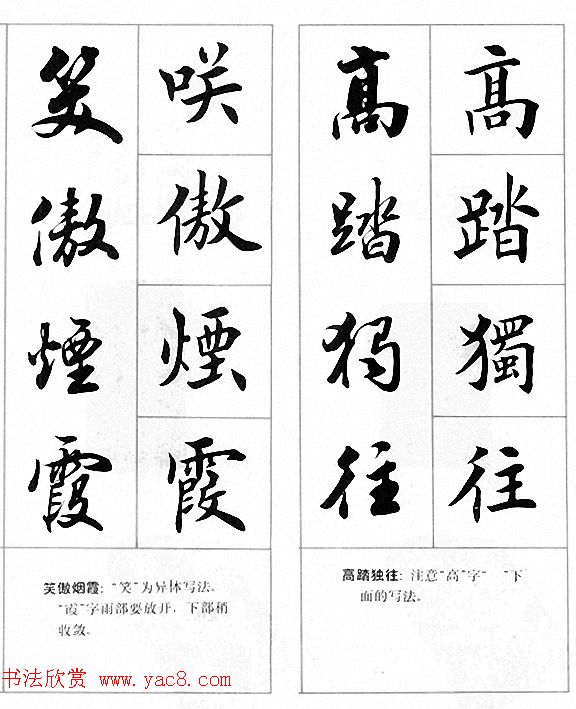 高踏獨往
高踏独往
高踏独往：注意“高”字“ ”下
面的写法。
咲傲煙霞
笑傲煙霞
笑傲烟霞：“笑”为异体写法。
“霞”字雨部要放开，下部稍
收敛。
书法欣赏 www.yac8.com